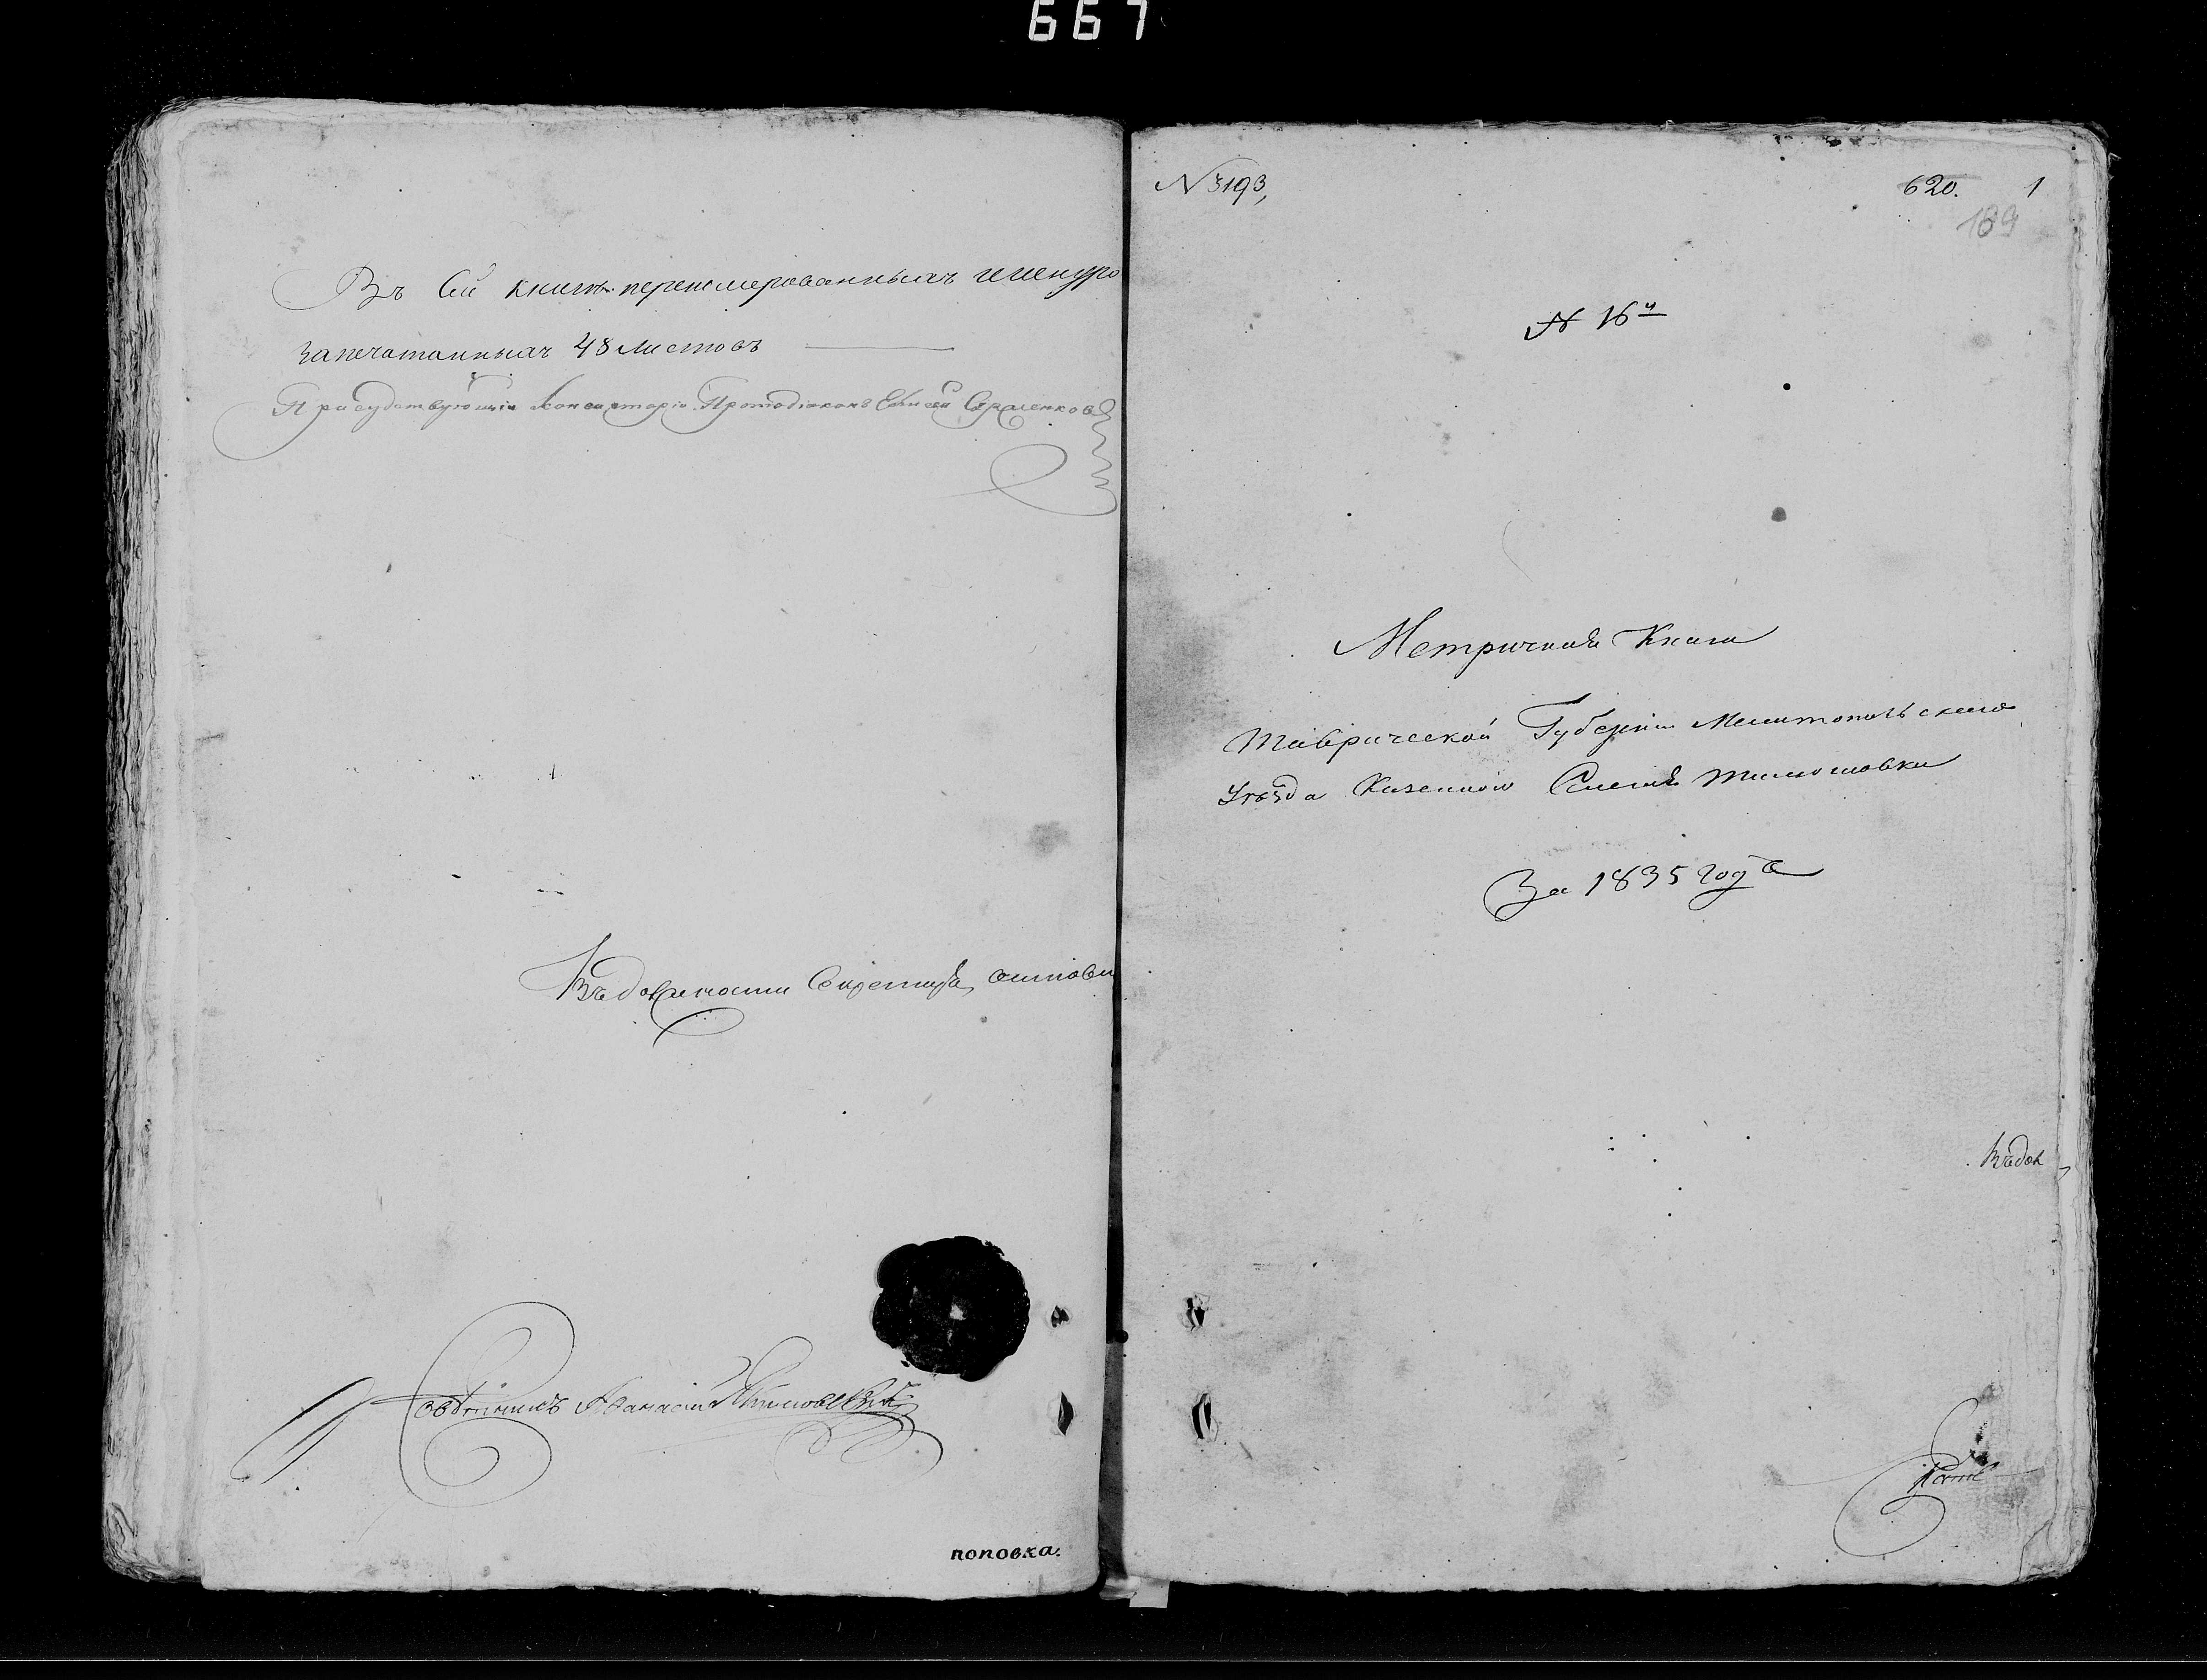 667
Въ Сей книгѣ перенумерованныхъ ишнуро
запечатанныхъ 48 листовъ
Присудствующій Консисторіи Протодіаконъ
Въ должности Секретаря
Афанасій
поповка.
N 3193,
620. 1
189
N 16й
Метричная Книга
Таврической Губерніи Мелитопольскаго
Уѣзда Казенного Селенія Тимошовки
За 1835 годъ
Въ дол